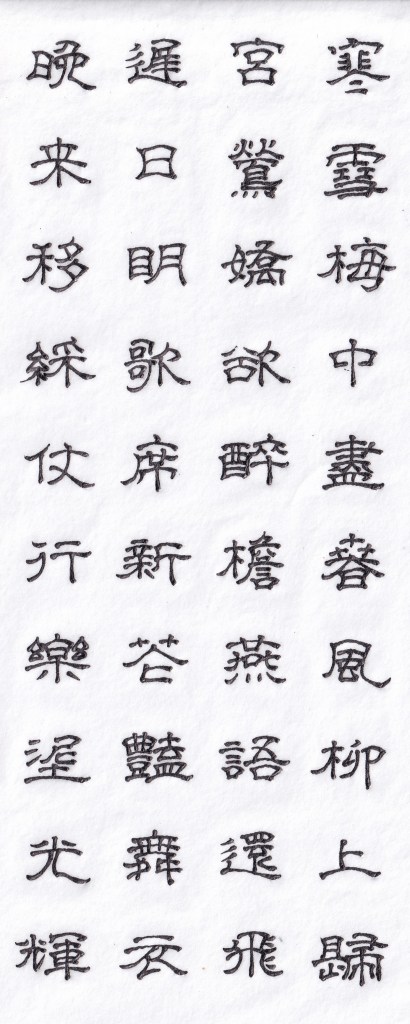 寒雪梅中盡春風柳上歸
宮鶯嬌欲醉檐燕語還飛
遲日眀歌席新花豔舞衣
晚来移綵仗行樂埿光輝